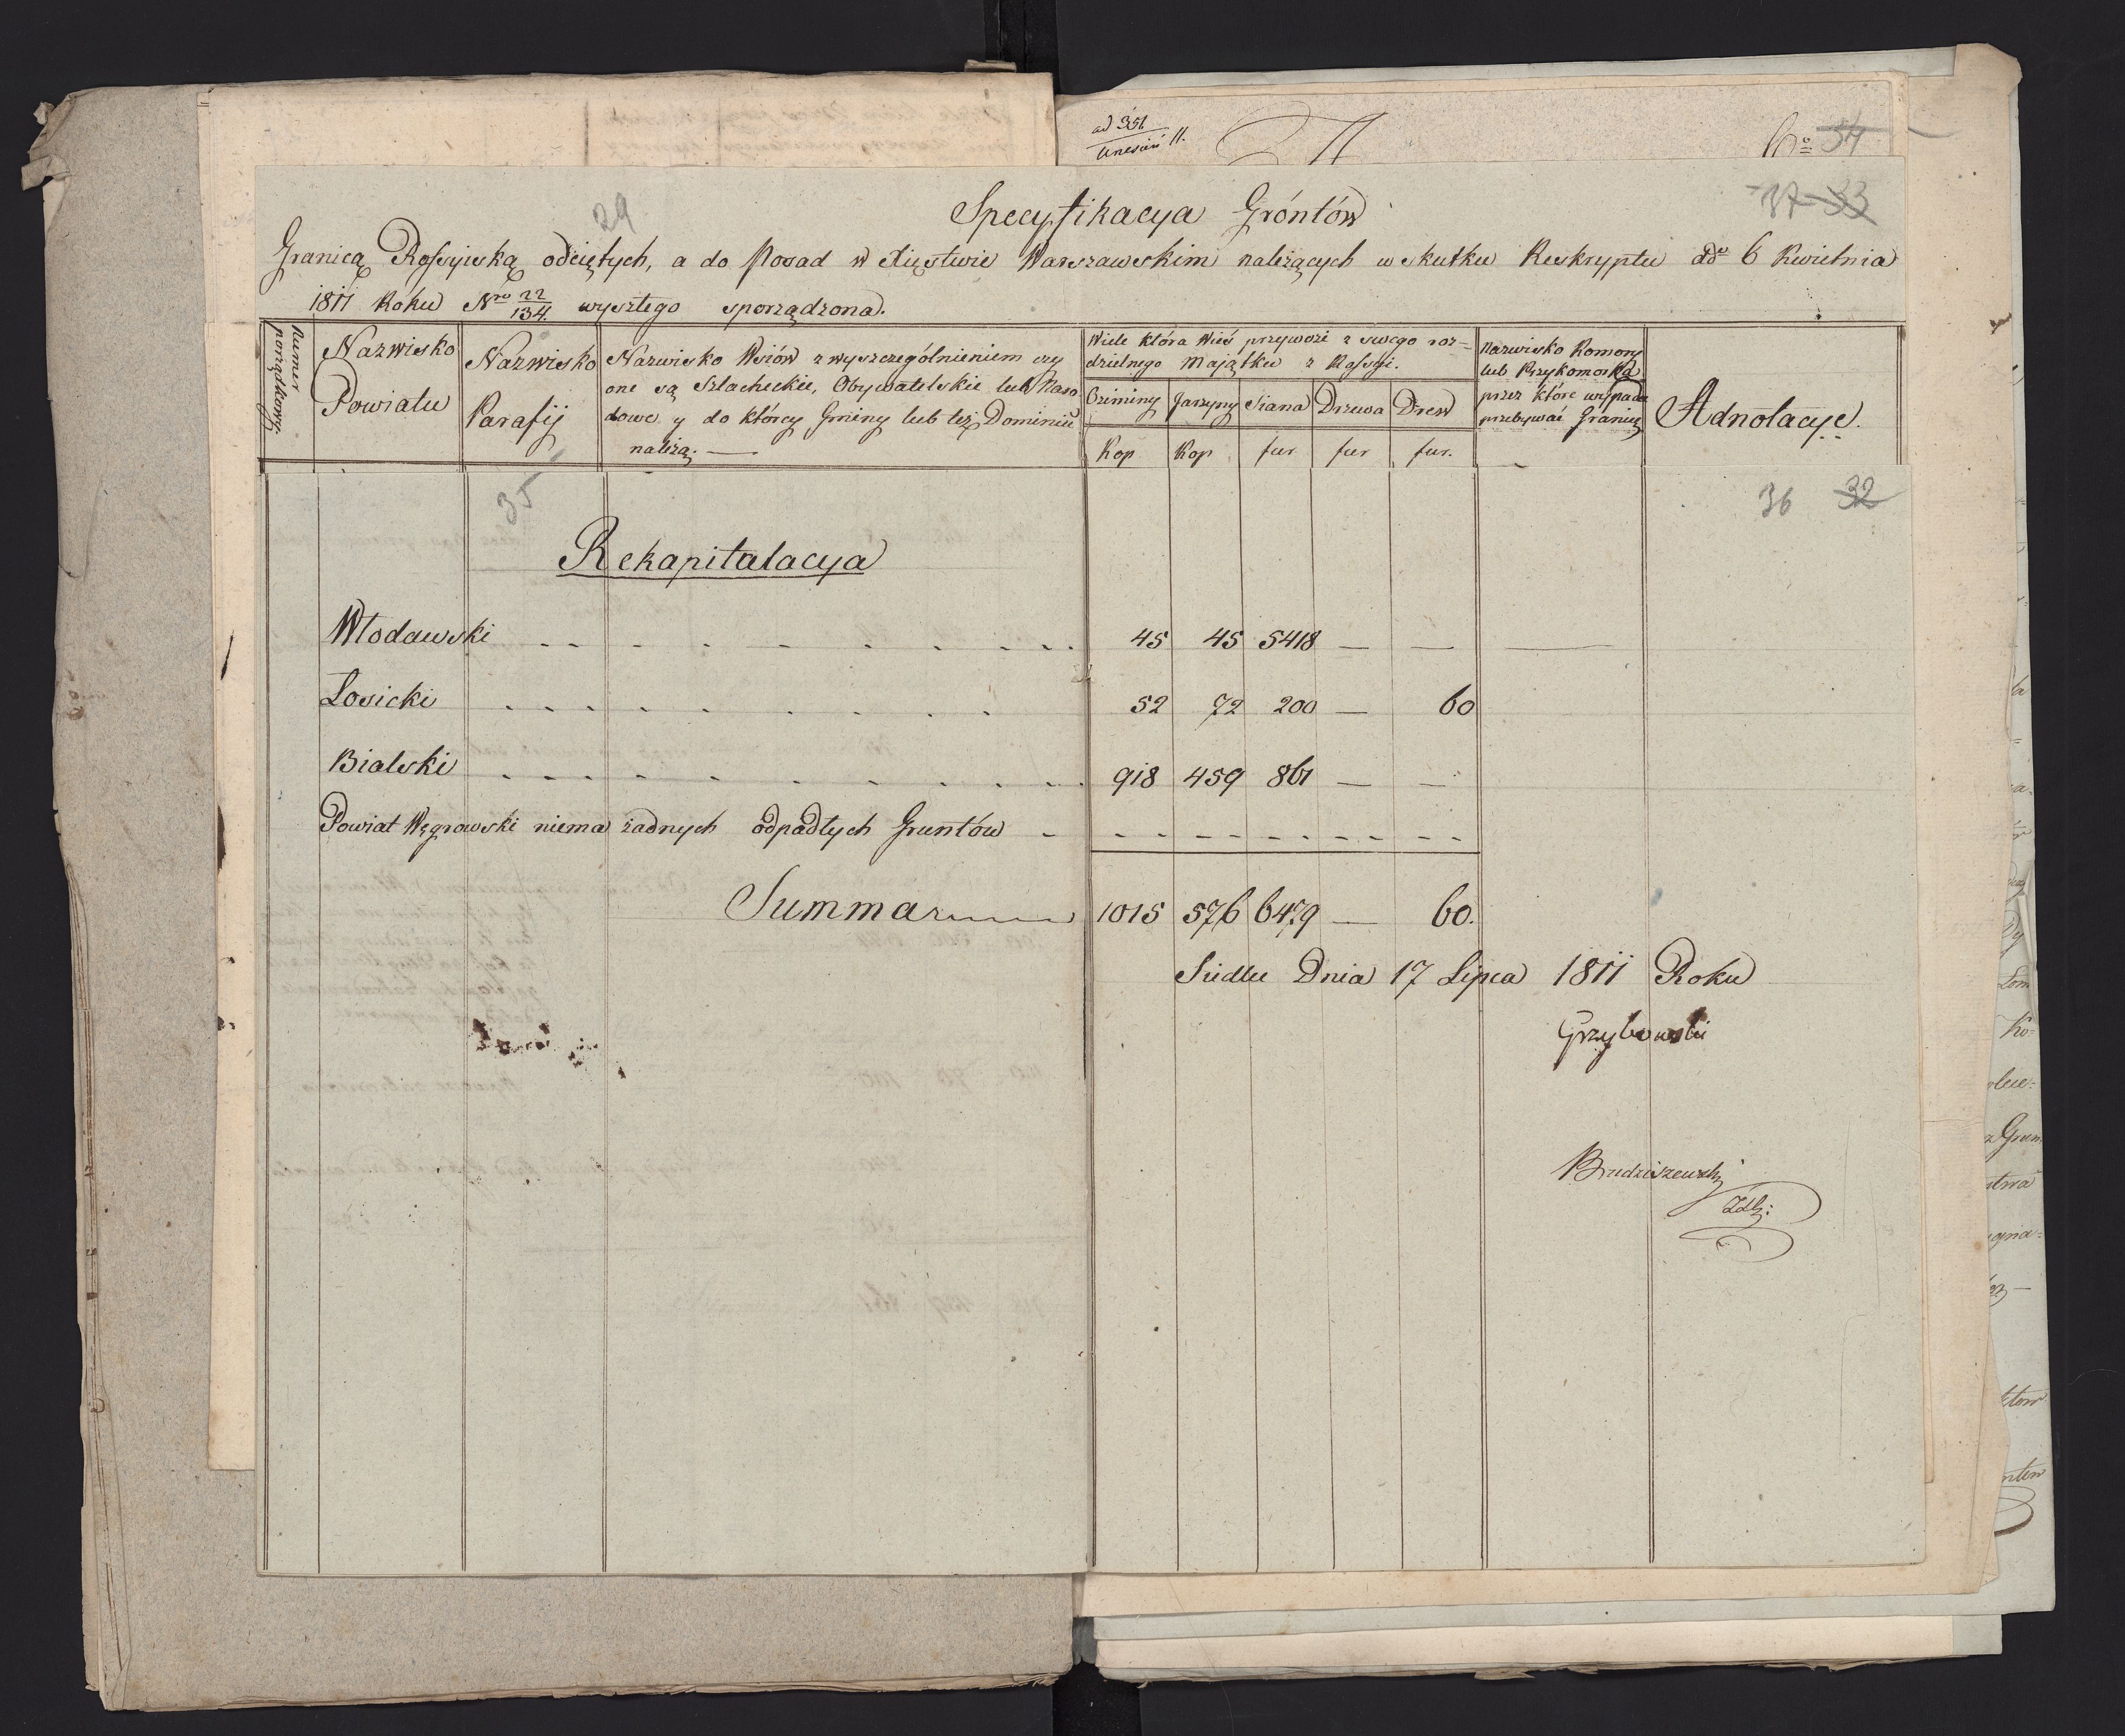 ad 356
No 54
29
37 33
Specyfikacya Gróntów
Granicą Rossyiską odciętych, a do Posad w Xięstwie Warszawskim należących w skutku Reskryptu ddo 6 Kwietnia
1811 Roku Nro 22/134 wyszłego sporządzona.
Numer porządkowy.
Nazwisko Powiatu
Nazwisko Parafij
Nazwisko Wsiów z wyszczególnieniem czy
one są Szlacheckie, Obywatelskie lub Naro
dowe y do którey Gminy lub też Dominiu
należą. —
Wiele która Wieś przywozi z swego roz=
dzielnego Maiątku z Rossyi.
Oziminy Jarzyny Siana Drzewa Drew
Kop Kop fur fur fur.
Nazwisko Komory
lub Przykomorka
przez które wypada
przebywać Granicę
Adnotacye.
35
36 32
Rekapitulacya
Włodawski - - - - - - - - - - 45 45 5418 — — —
Łosicki - - - - - - - - - 52 72 200 — 60
Bialski - - - - - - - - - - 918 459 861 — —
Powiat Węgrowski niema żadnych odpadłych Gruntów - - - - - - - - - - -
Summa 1015 576 6479 — 60.
Siedlce Dnia 17 Lipca 1811 Roku
Grzybowski
Budziszewski